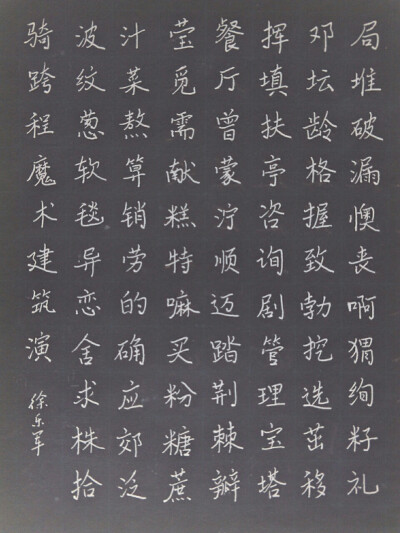 局堆破漏懊丧啊猬绚籽礼
邓坛龄格握致勃挖选茁移
挥填扶亭咨询剧管理宝塔
餐厅曾蒙泞顺迈踏荆棘瓣
莹觅需献糕特嘛买粉糖蔗
汁菜熬算销劳的确应郊泛
波纹葱软毯异恋舍求株拾
骑跨程魔术建筑演
徐东军